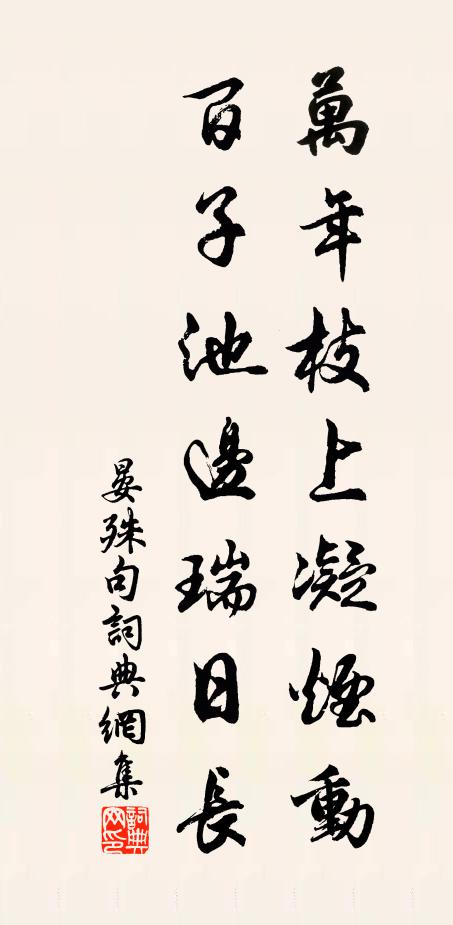 萬年枝上凝煙動
百子池邊瑞日長
晏殊句詞典網集
詞典網印